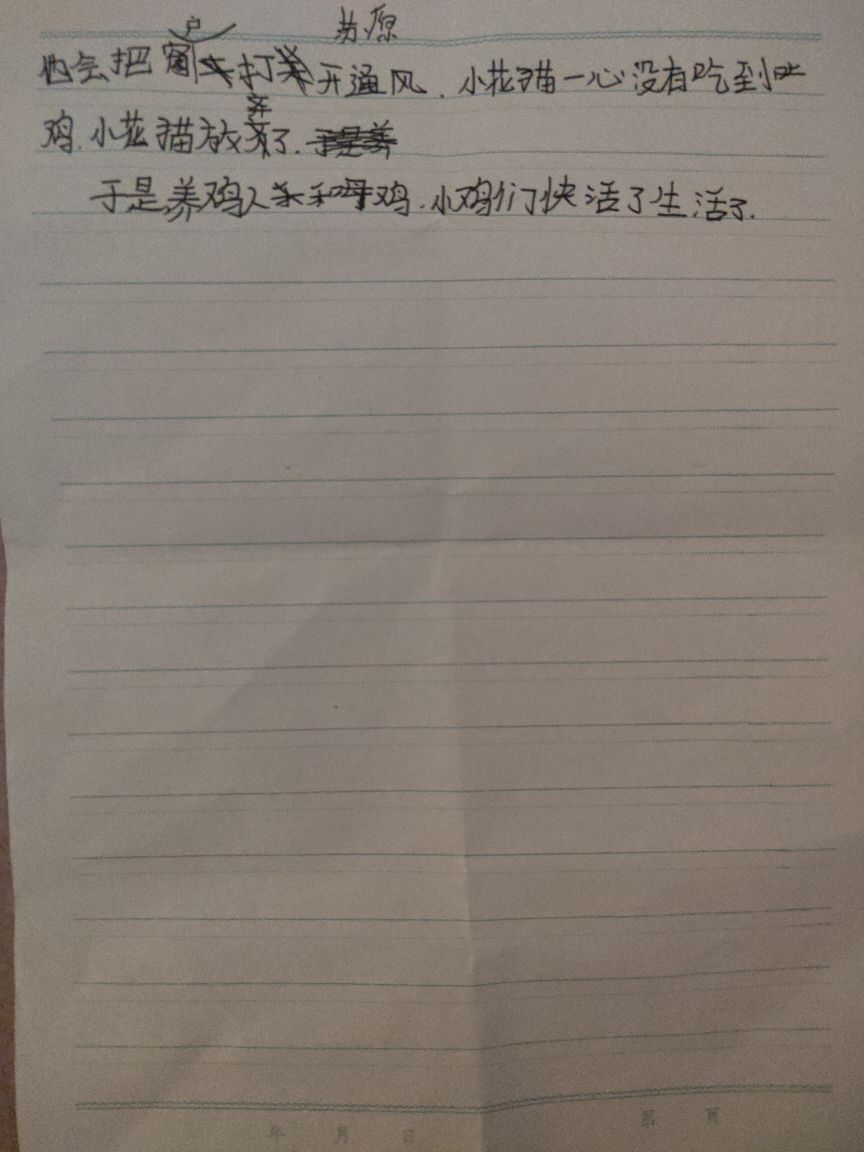 苏原
他会把窗户打开通风．小花猫一心没有吃到小
鸡．小花猫放弃了．
于是养鸡人和母鸡．小鸡们快活了生活了．
年 月 日 第 页